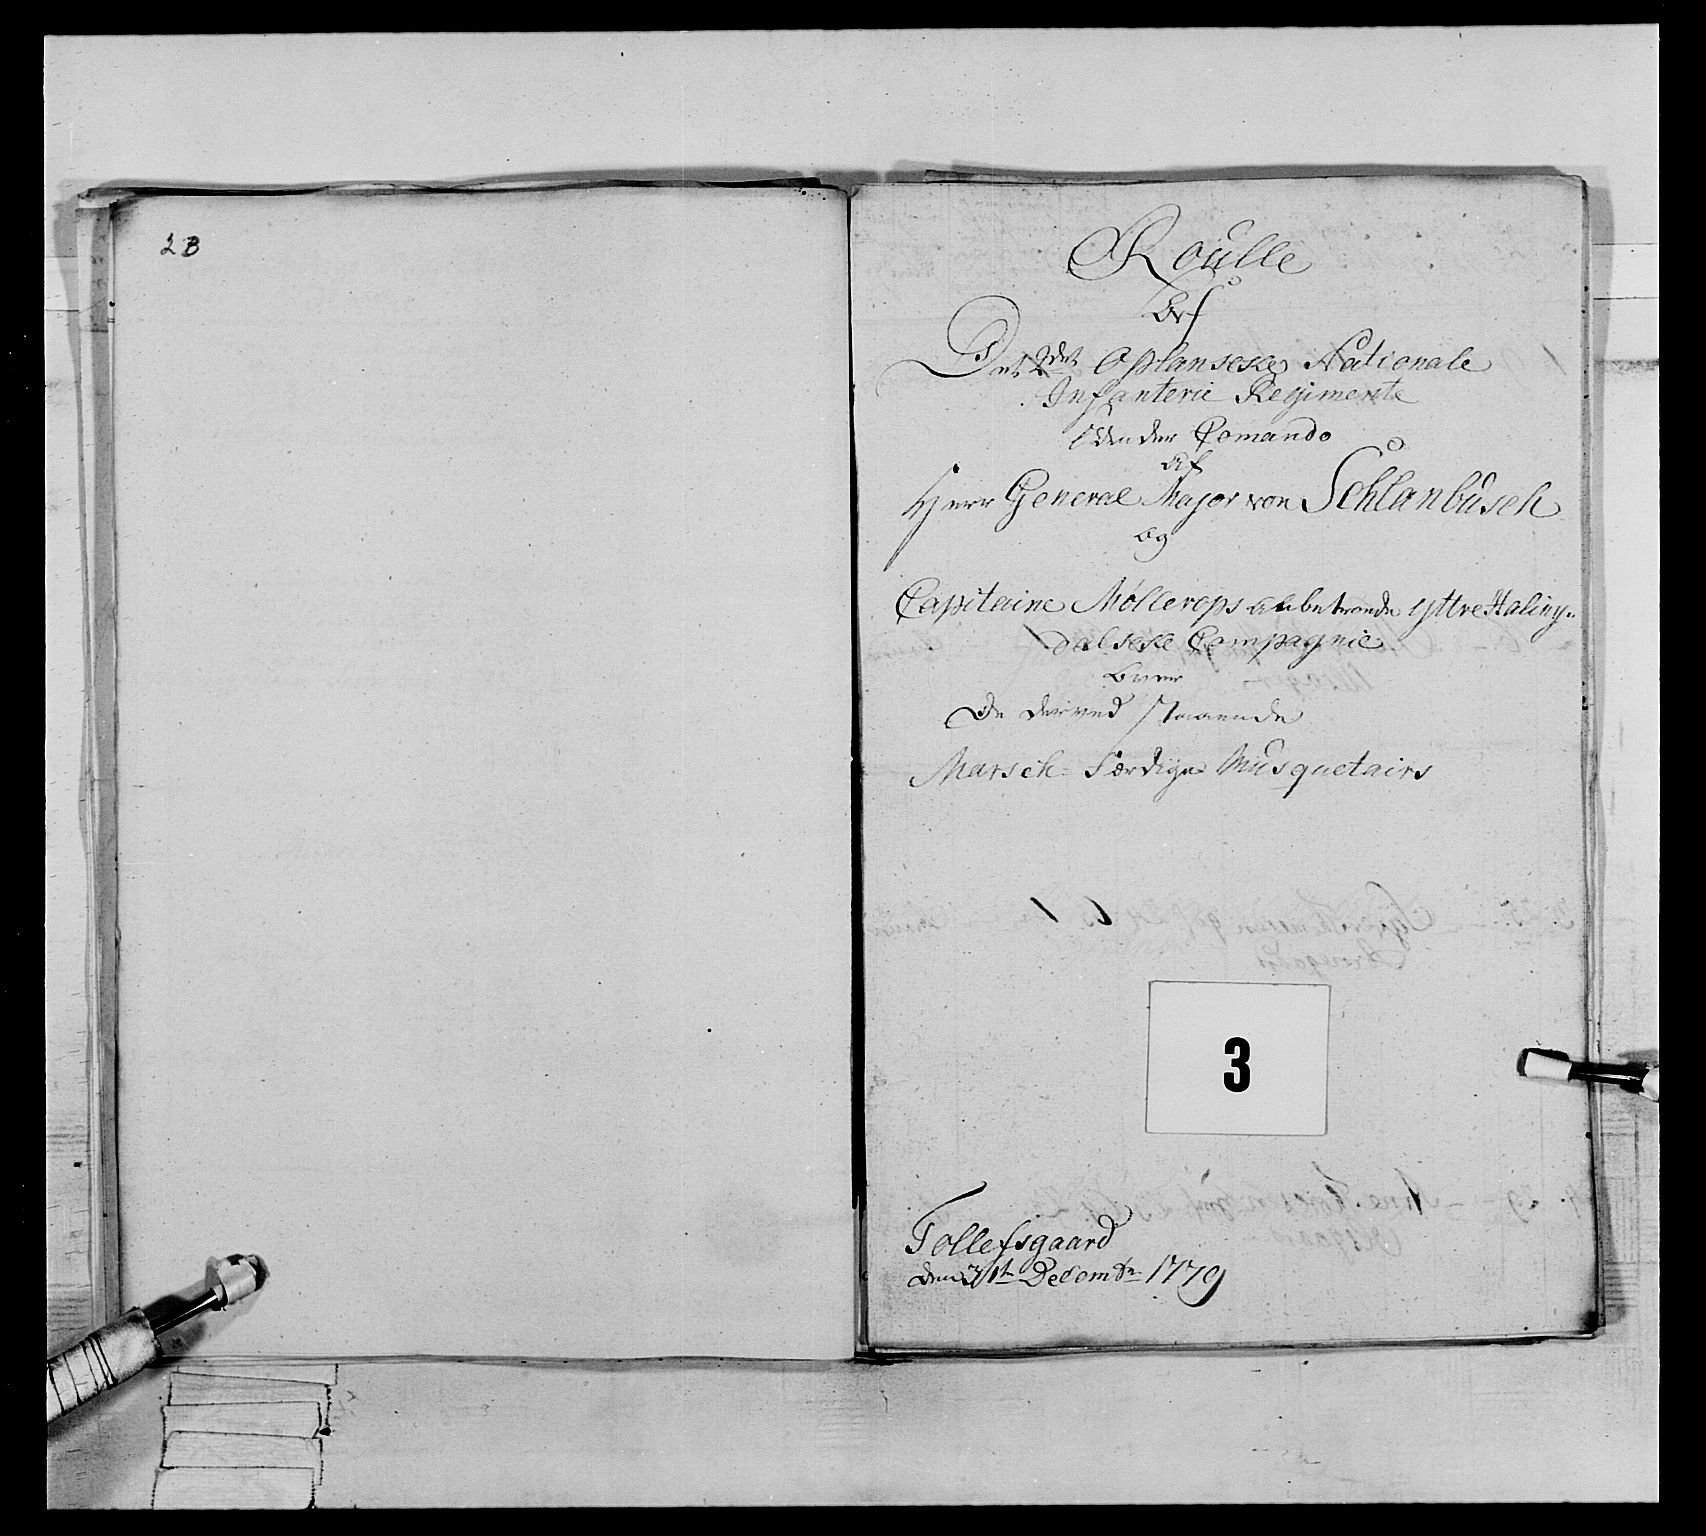 2B
Roulle
Over
Det 2det Oplanske Nationale
Infanterie Regimente
Under Comando
af
Herr General Major von Schlanbusch
og
Capitaine Møllerops anbetroede Yttre Haling-
dalske Compagnie
over
De derved staaende
Marsch-færdige Musquetairs
3
Tollefsgaard
den 31te Decembr 1779